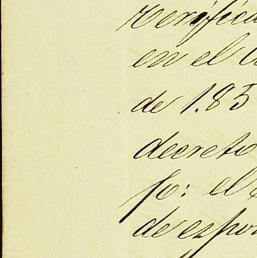 verifica
en el
de 1.85
decreto
fo: el
de espor